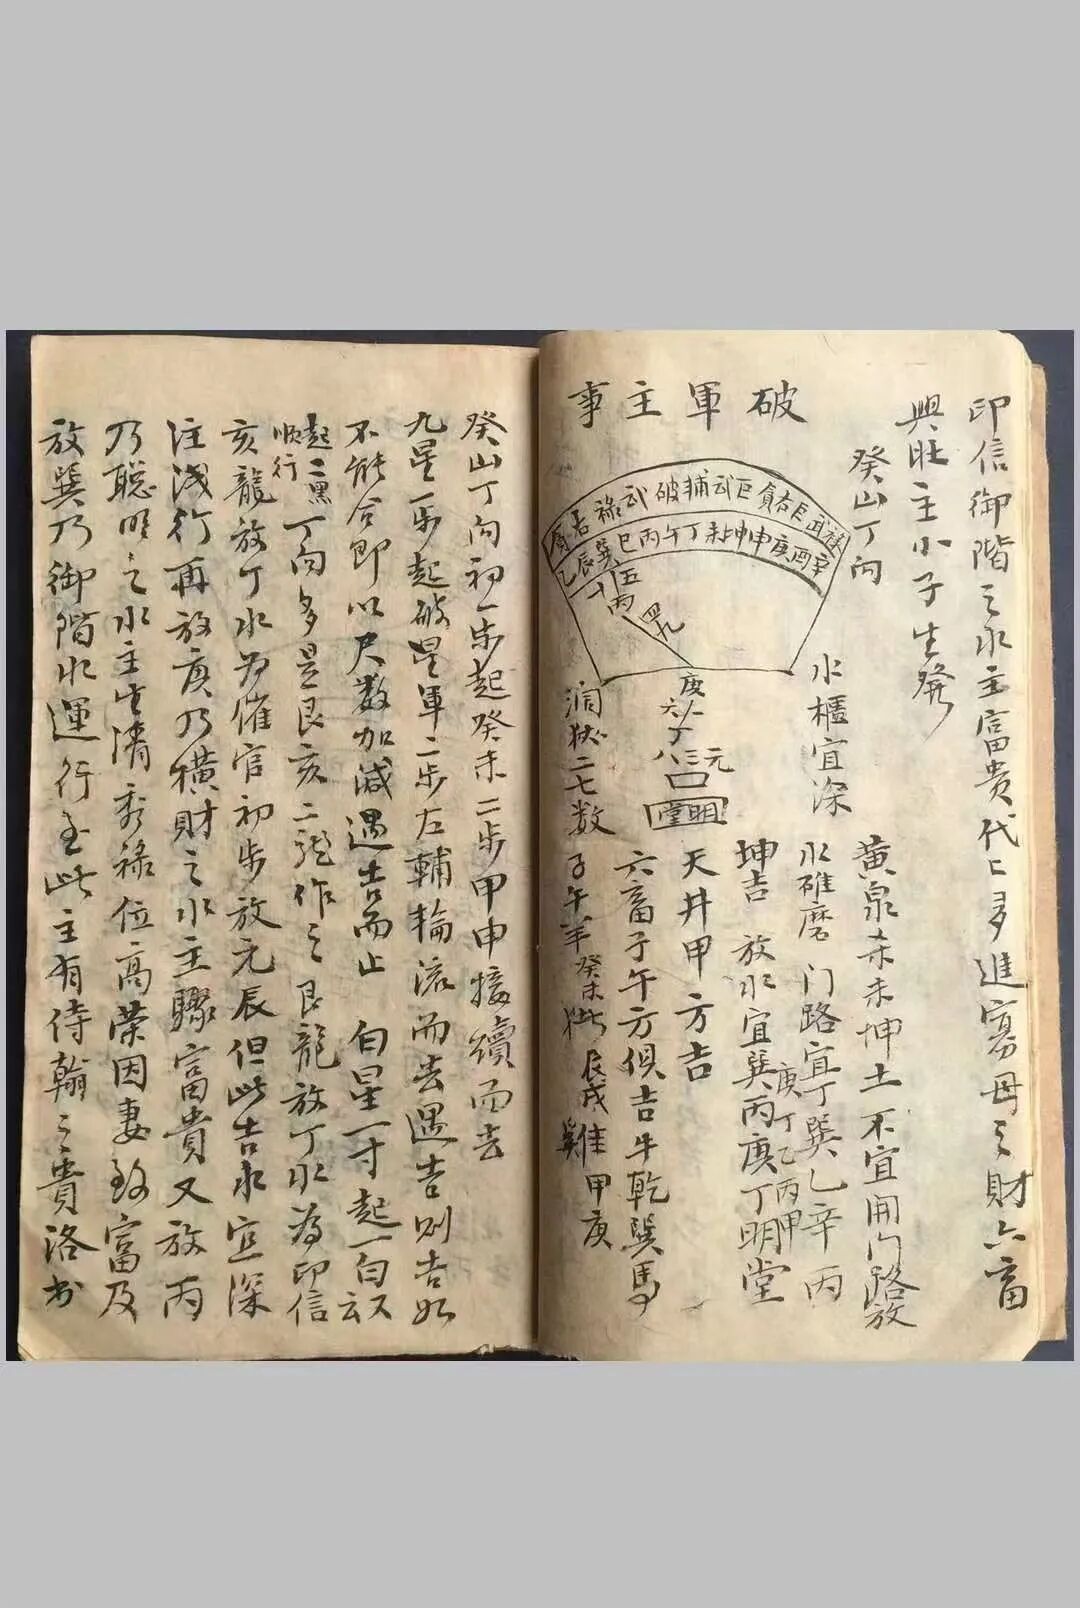 印信御階之水主富贵代〻多進寡母之財六畜
興旺主小子生發
癸山丁向
破軍主事
武祿
破武輔
貪巨武
辛酉庚申坤未丁午丙巳巽辰乙
水櫃宜深
庚
丁
三元
八
明堂
洞状二七数
黄泉未坤土不宜用门路放
水碓磨 门路宜丁巽乙辛丙
庚丁乙丙甲
坤吉 放水宜巽丙庚丁明堂
天井甲方吉
六畜子午方俱吉牛乾巽馬
子午羊癸未 辰戌 雞甲庚
癸山丁向初一步起癸未二步甲申接續而去
九星一步起破星軍二步左輔輪流而去遇吉则吉如
不能合即以尺数加减遇吉而止 白星一寸起一白
起二黑
順行
丁向多是艮亥二龍作之艮龍放丁水為印信
亥龍放丁水为催官初步放元辰但此吉水宜深
注浅行再放庚乃横財之水主驟富貴又放丙
乃聪明之水主生清秀禄位高荣因妻致富及
放巽乃御階水運行至此主有侍翰之貴洛书